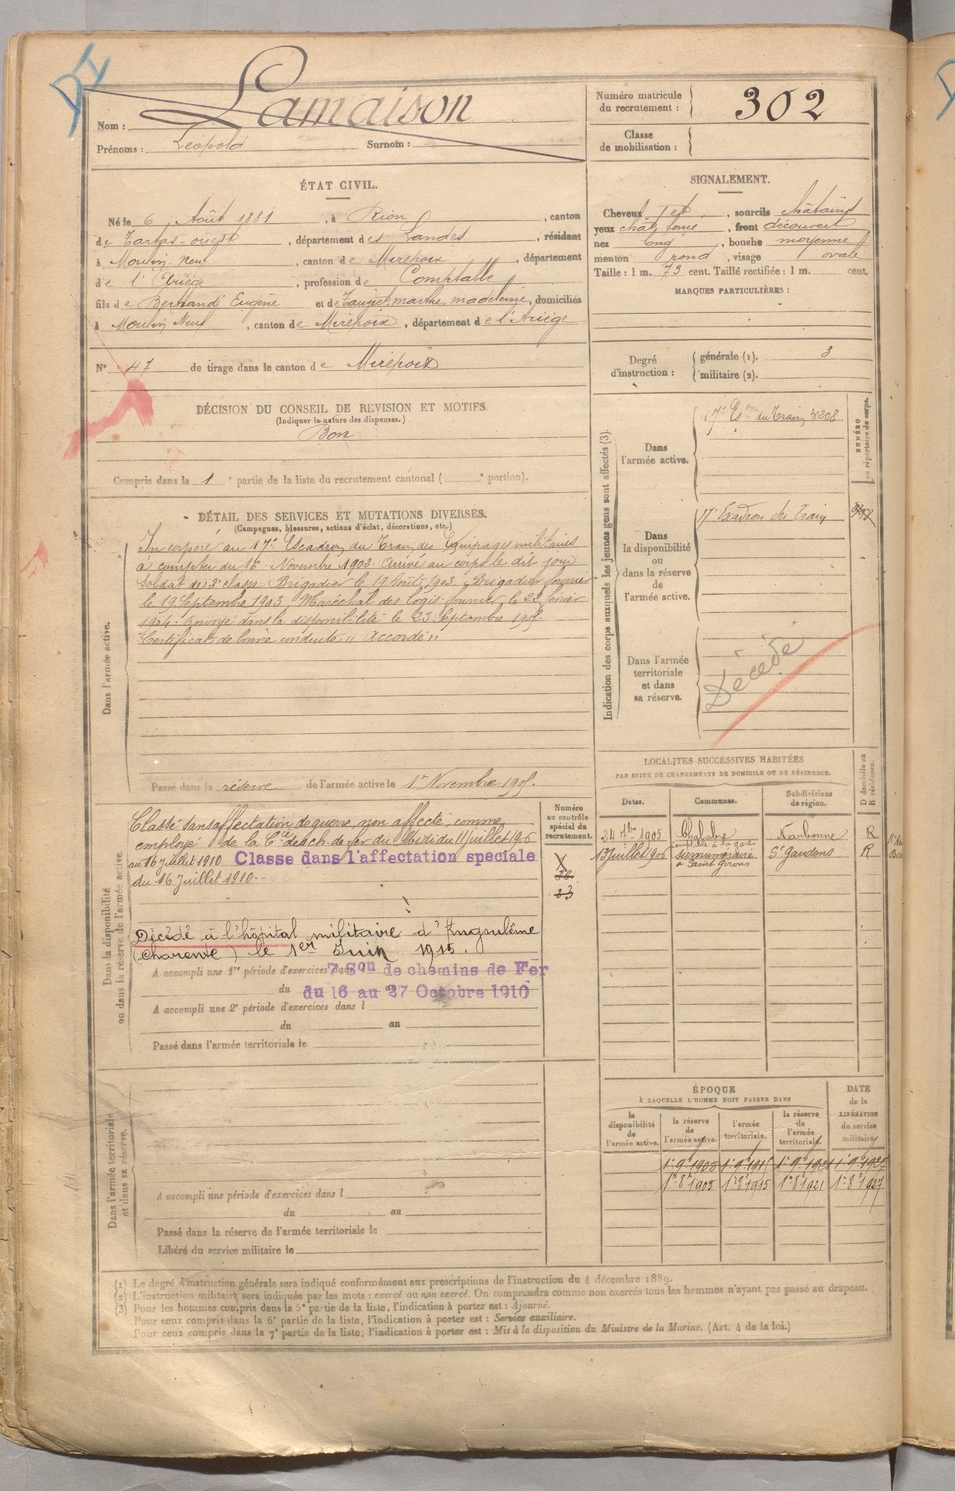 Nom : Lamaison
Prénoms : Léopold Surnom :
Numéro matricule du recrutement : 302
Classe de mobilisation :
ÉTAT CIVIL.
Né le 6 Août 1881, à Rion, canton
de Tartas-ouest, département des Landes, résidant
à Moulin-Neuf, canton de Mirepoix, département
de l'Ariège, profession de Comptable
fils de Bertrand Eugène et de marthe, madeleine, domiciliés
à Moulin Neuf, canton de Mirepoix, département de l'Ariège
N° 47 de tirage dans le canton de Mirepoix
SIGNALEMENT.
Cheveux , sourcils châtains
yeux , front découvert
nez long, bouche moyenne
menton rond, visage ovale
Taille : 1 m. 73 cent. Taille rectifiée : 1 m. cent.
MARQUES PARTICULIÈRES :
Degré d'instruction : générale (1). 3
militaire (2).
DÉCISION DU CONSEIL DE REVISION ET MOTIFS.
(Indiquer la nature des dispenses.)
Bon
Compris dans la 1e partie de la liste du recrutement cantonal ( e portion).
DÉTAIL DES SERVICES ET MUTATIONS DIVERSES.
(Campagnes, blessures, actions d'éclat, décorations, etc.)
Dans l'armée active.
Incorporé au 17e Escadron du Train des Équipages militaires
à compter du 16 Novembre 1902. Arrivé au corps le dit jour
Soldat de 2e classe. Brigadier le 19 1903. Brigadier fourrier
le 19 Septembre 1903. Maréchal des logis fourrier le 22 février
1904. Envoyé dans la disponibilité le 23 Septembre 1905.
Certificat de bonne conduite "Accordé"
Passé dans la réserve de l'armée active le 1er Novembre 1905.
Indication des corps auxquels les jeunes gens sont affectés (3).
NUMÉRO au répertoire du corps.
Dans l'armée active.
17e Eson du Train 3208
Dans la disponibilité ou dans la réserve de l'armée active.
17e Escadron du Train
Dans l'armée territoriale et dans sa réserve.
Décédé
Dans la disponibilité ou dans la réserve de l'armée active.
Classé sans affectation de guerre, non affecté: comme
employé de la Cie des ch. de fer du Midi du 11 juillet 1906
au 16 Juillet 1910 Classe dans l'affectation speciale
du 16 Juillet 1910
Décédé à l'hôpital militaire d'Angoulême
(Charente) le 1er Juin 1915.
A accompli une 1re période d'exercices dans 7 Son de chemins de Fer
du 16 au 27 Octobre 1910
A accompli une 2e période d'exercices dans l
du au
Passé dans l'armée territoriale le
Numéro au contrôle spécial du recrutement.
LOCALITÉS SUCCESSIVES HABITÉES
PAR SUITE DE CHANGEMENTS DE DOMICILE OU DE RÉSIDENCE.
Dates. Communes. Subdivisions de région. D domicile ou R résidence.
24 1905 Chalabre Narbonne R
13 juillet 1906 surnuméraire à Saint Girons St Gaudens R
ÉPOQUE
À LAQUELLE L'HOMME DOIT PASSER DANS
la disponibilité de l'armée active. la réserve de l'armée active. l'armée territoriale. la réserve de l'armée territoriale. DATE de la LIBÉRATION du service militaire.
1er 8 1905 1er 8 1915 1er 8 1921 1er 8 1927
Dans l'armée territoriale et dans sa réserve.
A accompli une période d'exercices dans l
du au
Passé dans la réserve de l'armée territoriale le
Libéré du service militaire le
(1) Le degré d'instruction générale sera indiqué conformément aux prescriptions de l'instruction du 4 décembre 1889.
(2) L'instruction militaire sera indiquée par les mots : exercé ou non exercé. On comprendra comme non exercés tous les hommes n'ayant pas passé au drapeau.
(3) Pour les hommes compris dans la 5e partie de la liste, l'indication à porter est : Ajourné.
Pour ceux compris dans la 6e partie de la liste, l'indication à porter est : Service auxiliaire.
Pour ceux compris dans la 7e partie de la liste, l'indication à porter est : Mis à la disposition du Ministre de la Marine. (Art. 4 de la loi.)